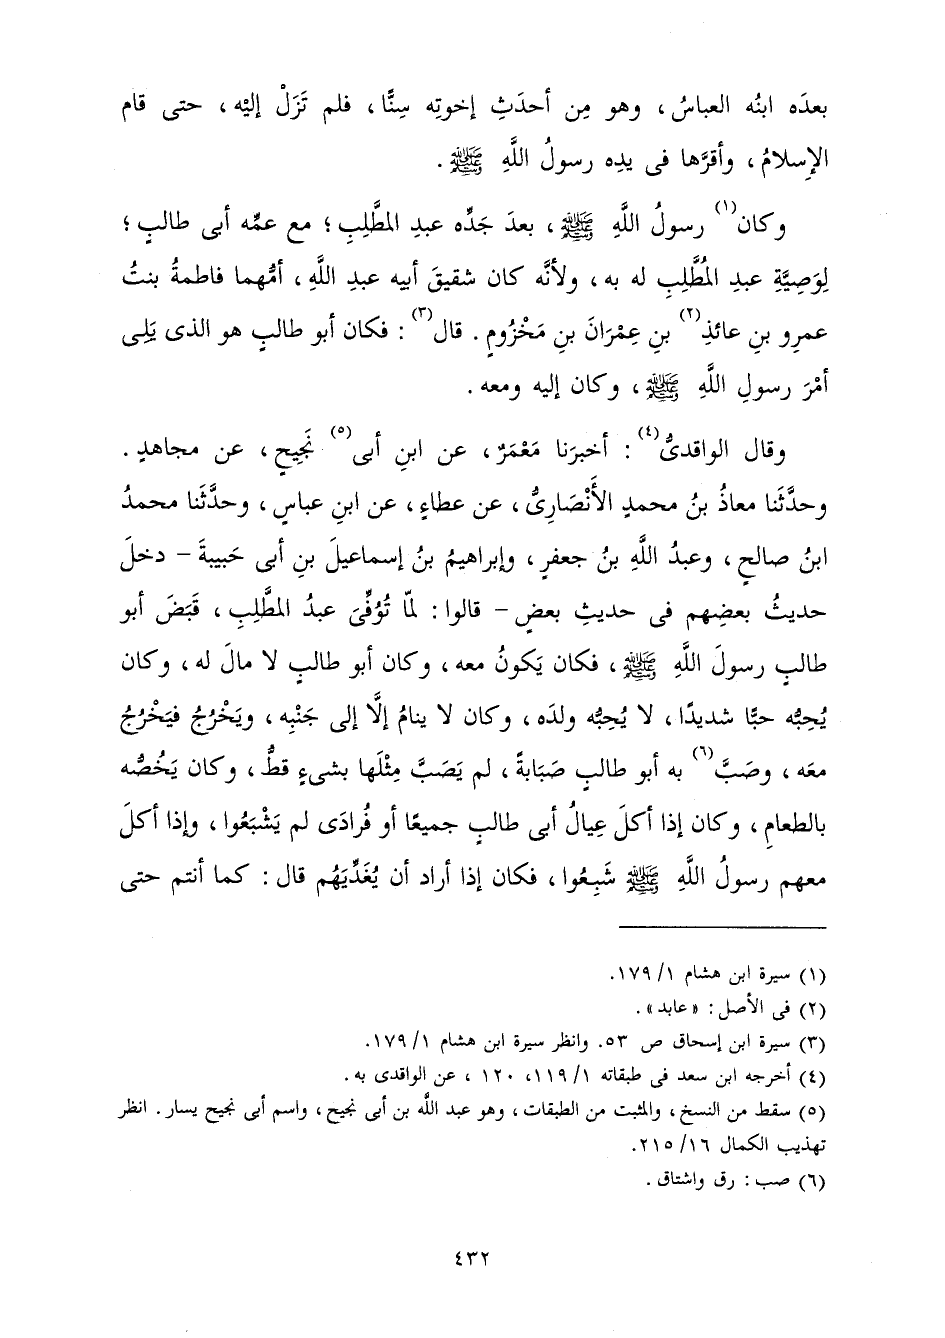 بعدَه ابنُه العباسُ ، وهو مِن أحدَثِ إخوتِه سِنًّا ، فلم تَزَلْ إليْه ، حتى قام
الإِسلامُ ، وأقرَّها فى يدِه رسولُ اللَّهِ ﷺ .
وكان(١) رسولُ اللَّهِ ﷺ ، بعدَ جَدِّه عبدِ المطَّلِبِ ؛ مع عمِّه أبى طالبٍ ؛
لِوَصِيَّةِ عبدِ المُطَّلِبِ له به ، ولأنَّه كان شقيقَ أبيه عبدِ اللَّهِ ، أمُّهما فاطمةُ بنتُ
عمرِو بنِ عائذِ(٢) بنِ عِمْرَانَ بنِ مَخْزُومٍ . قال(٣) : فكان أبو طالبٍ هو الذى يَلِى
أمْرَ رسولِ اللَّهِ ﷺ ، وكان إليه ومعه .
وقال الواقدىُّ(٤) : أخبرَنا مَعْمَرٌ ، عن ابنِ أبى(٥) نَجِيحٍ ، عن مجاهدٍ .
وحدَّثَنا معاذُ بنُ محمدٍ الأَنْصَارِىُّ ، عن عطاءٍ ، عن ابنِ عباسٍ ، وحدَّثَنا محمدُ
ابنُ صالحٍ ، وعبدُ اللَّهِ بنُ جعفرٍ ، وإبراهيمُ بنُ إسماعيلَ بنِ أبى حَبيبةَ – دخلَ
حديثُ بعضِهم فى حديثِ بعضٍ – قالوا : لمّا تُوُفِّىَ عبدُ المطَّلِبِ ، قَبَضَ أبو
طالبٍ رسولَ اللَّهِ ﷺ ، فكان يَكونُ معه ، وكان أبو طالبٍ لا مالَ له ، وكان
يُحِبُّه حبًّا شديدًا ، لا يُحِبُّه ولدَه ، وكان لا ينامُ إلَّا إلى جَنْبِه ، ويَخْرُجُ فيَخْرُجُ
معَه ، وصَبَّ(٦) به أبو طالبٍ صَبَابةً ، لم يَصَبَّ مِثْلَها بشىءٍ قطُّ ، وكان يَخُصُّه
بالطعامِ ، وكان إذا أكلَ عِيالُ أبى طالبٍ جميعًا أو فُرادَى لم يَشْبَعُوا ، وإذا أكلَ
معهم رسولُ اللَّهِ ﷺ شَبِعُوا ، فكان إذا أراد أن يُغَدِّيَهُم قال : كما أنتم حتى
(١) سيرة ابن هشام ١/ ١٧٩.
(٢) فى الأصل : « عابد » .
(٣) سيرة ابن إسحاق ص ٥٣. وانظر سيرة ابن هشام ١/ ١٧٩.
(٤) أخرجه ابن سعد فى طبقاته ١/ ١١٩، ١٢٠ ، عن الواقدى به .
(٥) سقط من النسخ ، والمثبت من الطبقات ، وهو عبد اللَّه بن أبى نجيح ، واسم أبى نجيح يسار . انظر
تهذيب الكمال ١٦/ ٢١٥.
(٦) صب : رق واشتاق .
٤٣٢